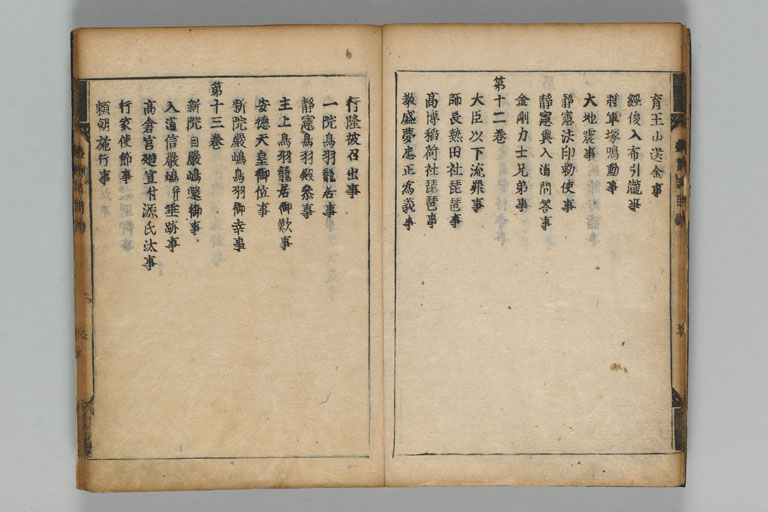 育王山送金事
經俊入布引瀧事
將軍塚鳴動事
大地震事
靜憲法印勅使事
靜憲與入道問答事
金剛力士兄弟事
第十二卷
大臣以下流罪事
師長熱田社琵琶事
高博稻荷社琵琶事
教盛夢忠正爲義事
行隆被召出事
一院鳥羽籠居事
靜憲鳥羽殿參事
主上鳥羽籠居御歎事
安德天皇御位事
新院嚴嶋鳥羽御幸事
第十三卷
新院自嚴嶋還御事
入道信嚴嶋并垂跡事
高倉宮廻宣附源氏汰事
行家使節事
賴朝施行事